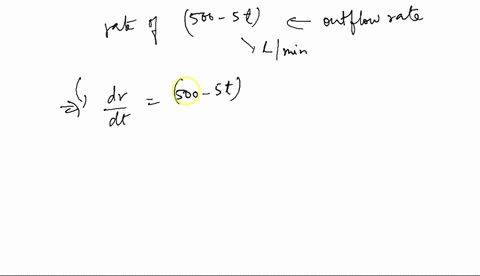 rate of (500 - 5t) ← outflow rate
↘ L/min
⇒ ( ) dv/dt = (500 - 5t)